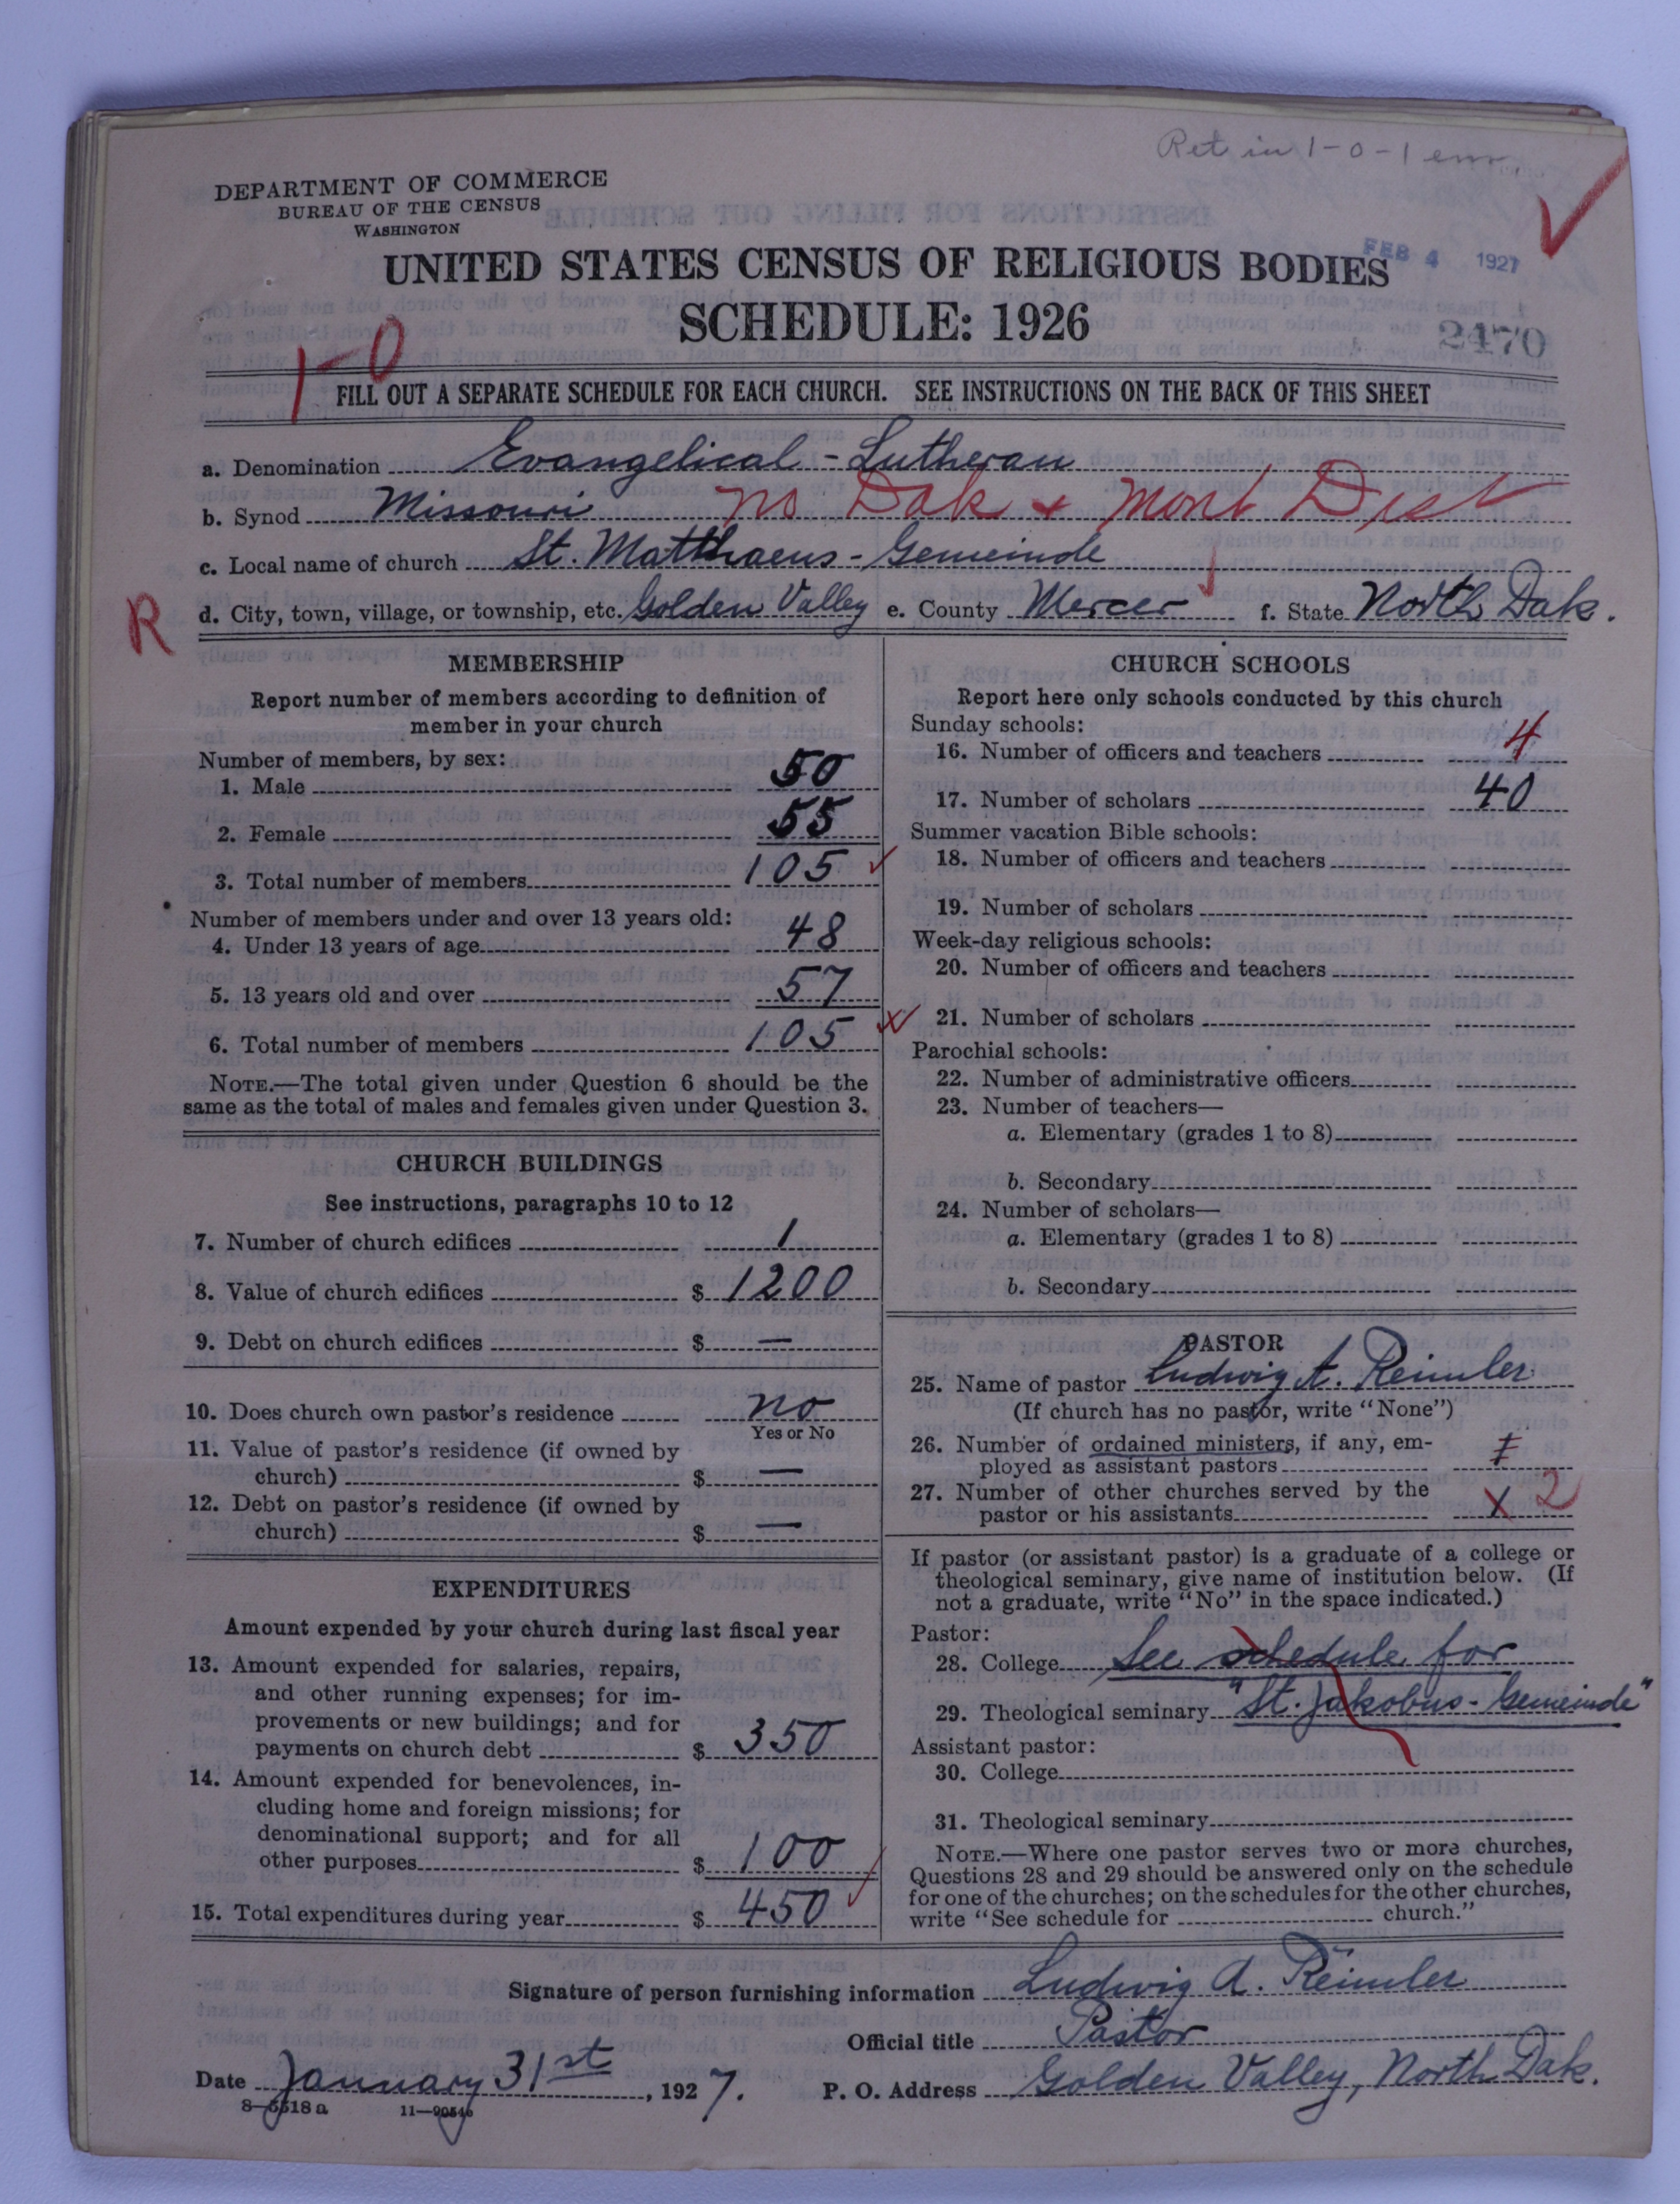 Ret in 1-0-1 env
DEPARTMENT OF COMMERCE
BUREAU OF THE CENSUS
WASHINGTON
UNITED STATES CENSUS OF RELIGIOUS BODIES
FEB 4 1927
SCHEDULE: 1926
2470
1-0
FILL OUT A SEPARATE SCHEDULE FOR EACH CHURCH. SEE INSTRUCTIONS ON THE BACK OF THIS SHEET
a. Denomination Evangelical - Lutheran
b. Synod Missouri No Dak & Mont Dist
c. Local name of church St. Matthaeus - Gemeinde
R
d. City, town, village, or township, etc. Golden Valley e. County Mercer f. State North Dak.
MEMBERSHIP
Report number of members according to definition of
member in your church
Number of members, by sex:
1. Male 50
2. Female 55
3. Total number of members 105
Number of members under and over 13 years old:
4. Under 13 years of age 48
5. 13 years old and over 57
6. Total number of members 105
NOTE.—The total given under Question 6 should be the
same as the total of males and females given under Question 3.
CHURCH BUILDINGS
See instructions, paragraphs 10 to 12
7. Number of church edifices 1
8. Value of church edifices $ 1200
9. Debt on church edifices $ —
10. Does church own pastor's residence no
Yes or No
11. Value of pastor's residence (if owned by
church) $ —
12. Debt on pastor's residence (if owned by
church) $ —
EXPENDITURES
Amount expended by your church during last fiscal year
13. Amount expended for salaries, repairs,
and other running expenses; for im-
provements or new buildings; and for
payments on church debt $ 350
14. Amount expended for benevolences, in-
cluding home and foreign missions; for
denominational support; and for all
other purposes $ 100
15. Total expenditures during year $ 450
CHURCH SCHOOLS
Report here only schools conducted by this church
Sunday schools:
16. Number of officers and teachers 4
17. Number of scholars 40
Summer vacation Bible schools:
18. Number of officers and teachers
19. Number of scholars
Week-day religious schools:
20. Number of officers and teachers
21. Number of scholars
Parochial schools:
22. Number of administrative officers
23. Number of teachers—
a. Elementary (grades 1 to 8)
b. Secondary
24. Number of scholars—
a. Elementary (grades 1 to 8)
b. Secondary
PASTOR
25. Name of pastor Ludwig A. Reimler
(If church has no pastor, write "None")
26. Number of ordained ministers, if any, em-
ployed as assistant pastors
27. Number of other churches served by the
pastor or his assistants 1 2
If pastor (or assistant pastor) is a graduate of a college or
theological seminary, give name of institution below. (If
not a graduate, write "No" in the space indicated.)
Pastor:
28. College See schedule for
29. Theological seminary "St. Jakobus - Gemeinde"
Assistant pastor:
30. College
31. Theological seminary
NOTE.—Where one pastor serves two or more churches,
Questions 28 and 29 should be answered only on the schedule
for one of the churches; on the schedules for the other churches,
write "See schedule for church."
Signature of person furnishing information Ludwig A. Reimler
Official title Pastor
Date January 31st, 1927. P. O. Address Golden Valley, North Dak.
8—5518a 11—90546